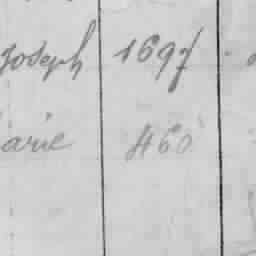 Joseph 1697
arie 460